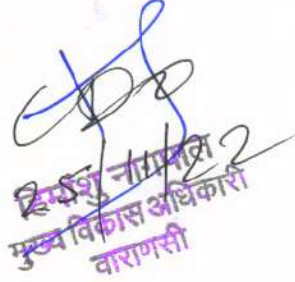 CDO
25/11/22
हिमांशु नागपाल
मुख्य विकास अधिकारी
वाराणसी